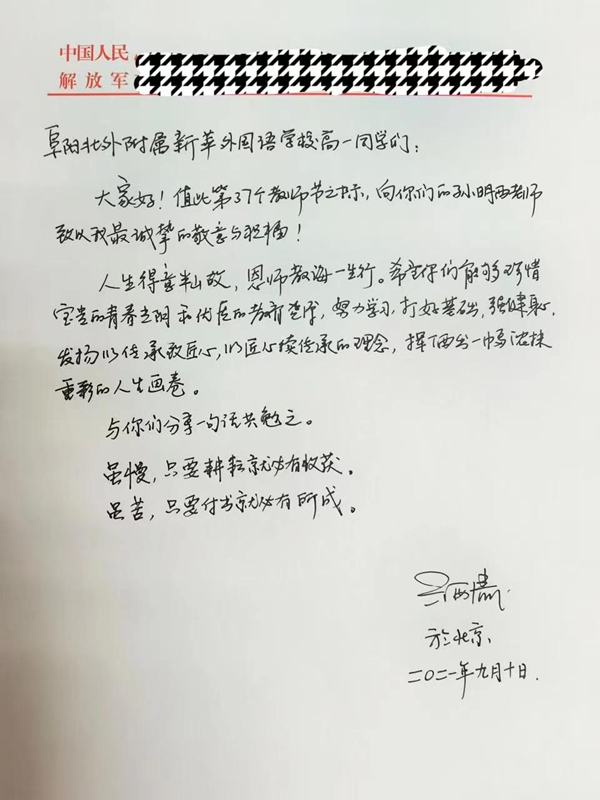 中国人民
解放军
阜阳北外附属新华外国语学校高一同学们：
大家好！值此第37个教师节之际，向你们的孙明西老师
致以我最诚挚的敬意与祝福！
人生得意半山放，恩师教诲一生行。希望你们能够珍惜
宝贵的青春光阴和优质的教育资源，努力学习，打好基础，强健身心，
发扬以传承致匠心，以匠心续传承的理念，挥洒出一幅浓抹
重彩的人生画卷。
与你们分享一句话共勉之。
虽慢，只要耕耘就必有收获。
虽苦，只要付出就必有所成。
于北京
二〇二一年九月十日.